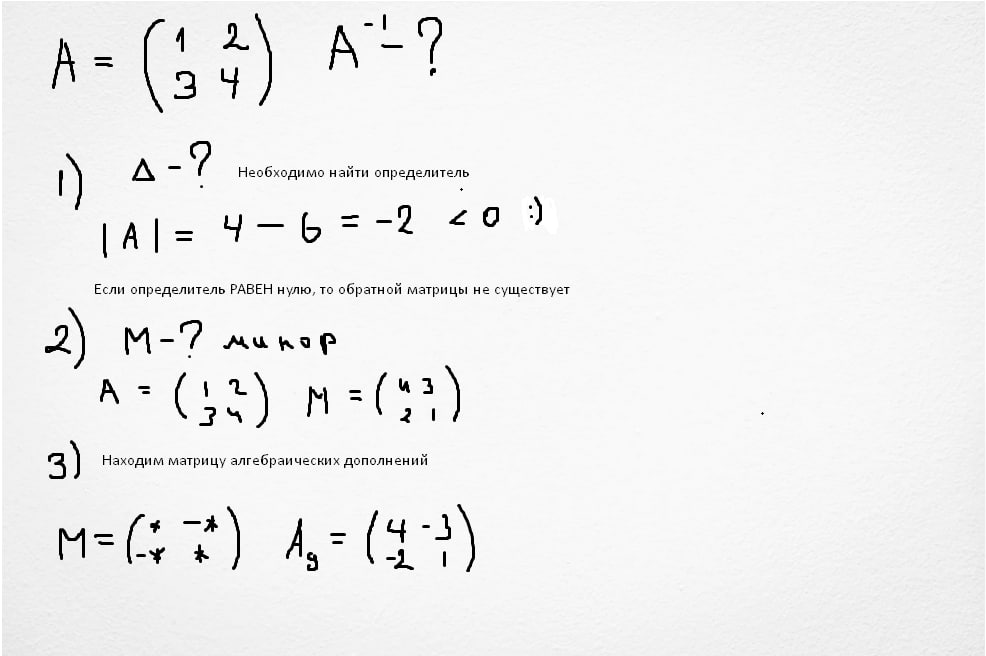 A = ( 1 2 A⁻¹ - ?
3 4 )
1) Δ - ? Необходимо найти определитель
|A| = 4 — 6 = -2 < 0 :)
Если определитель РАВЕН нулю, то обратной матрицы не существует
2) M - ? минор
A = ( 1 2 M = ( 4 3
3 4 ) 2 1 )
3) Находим матрицу алгебраических дополнений
M = ( * -* A₉ = ( 4 -3
-* * ) -2 1 )